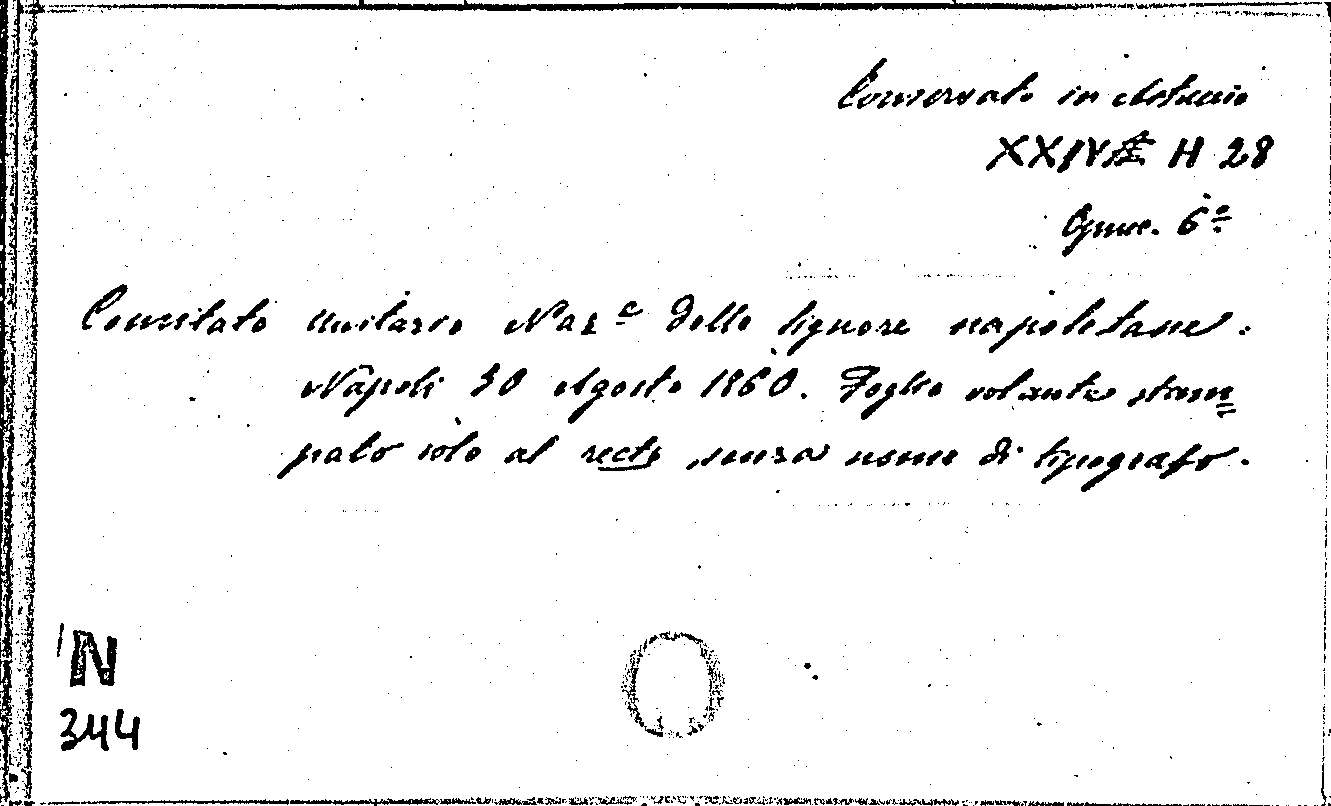 Conservato in Astuccio
XXIV H 28
Opusc. 6º
Comitato Unitario Nazᵉ delle signore napoletane.
Napoli 30 Agosto 1860. Foglio volante stam=
pato solo al recto senza nome di tipografo.
N
344